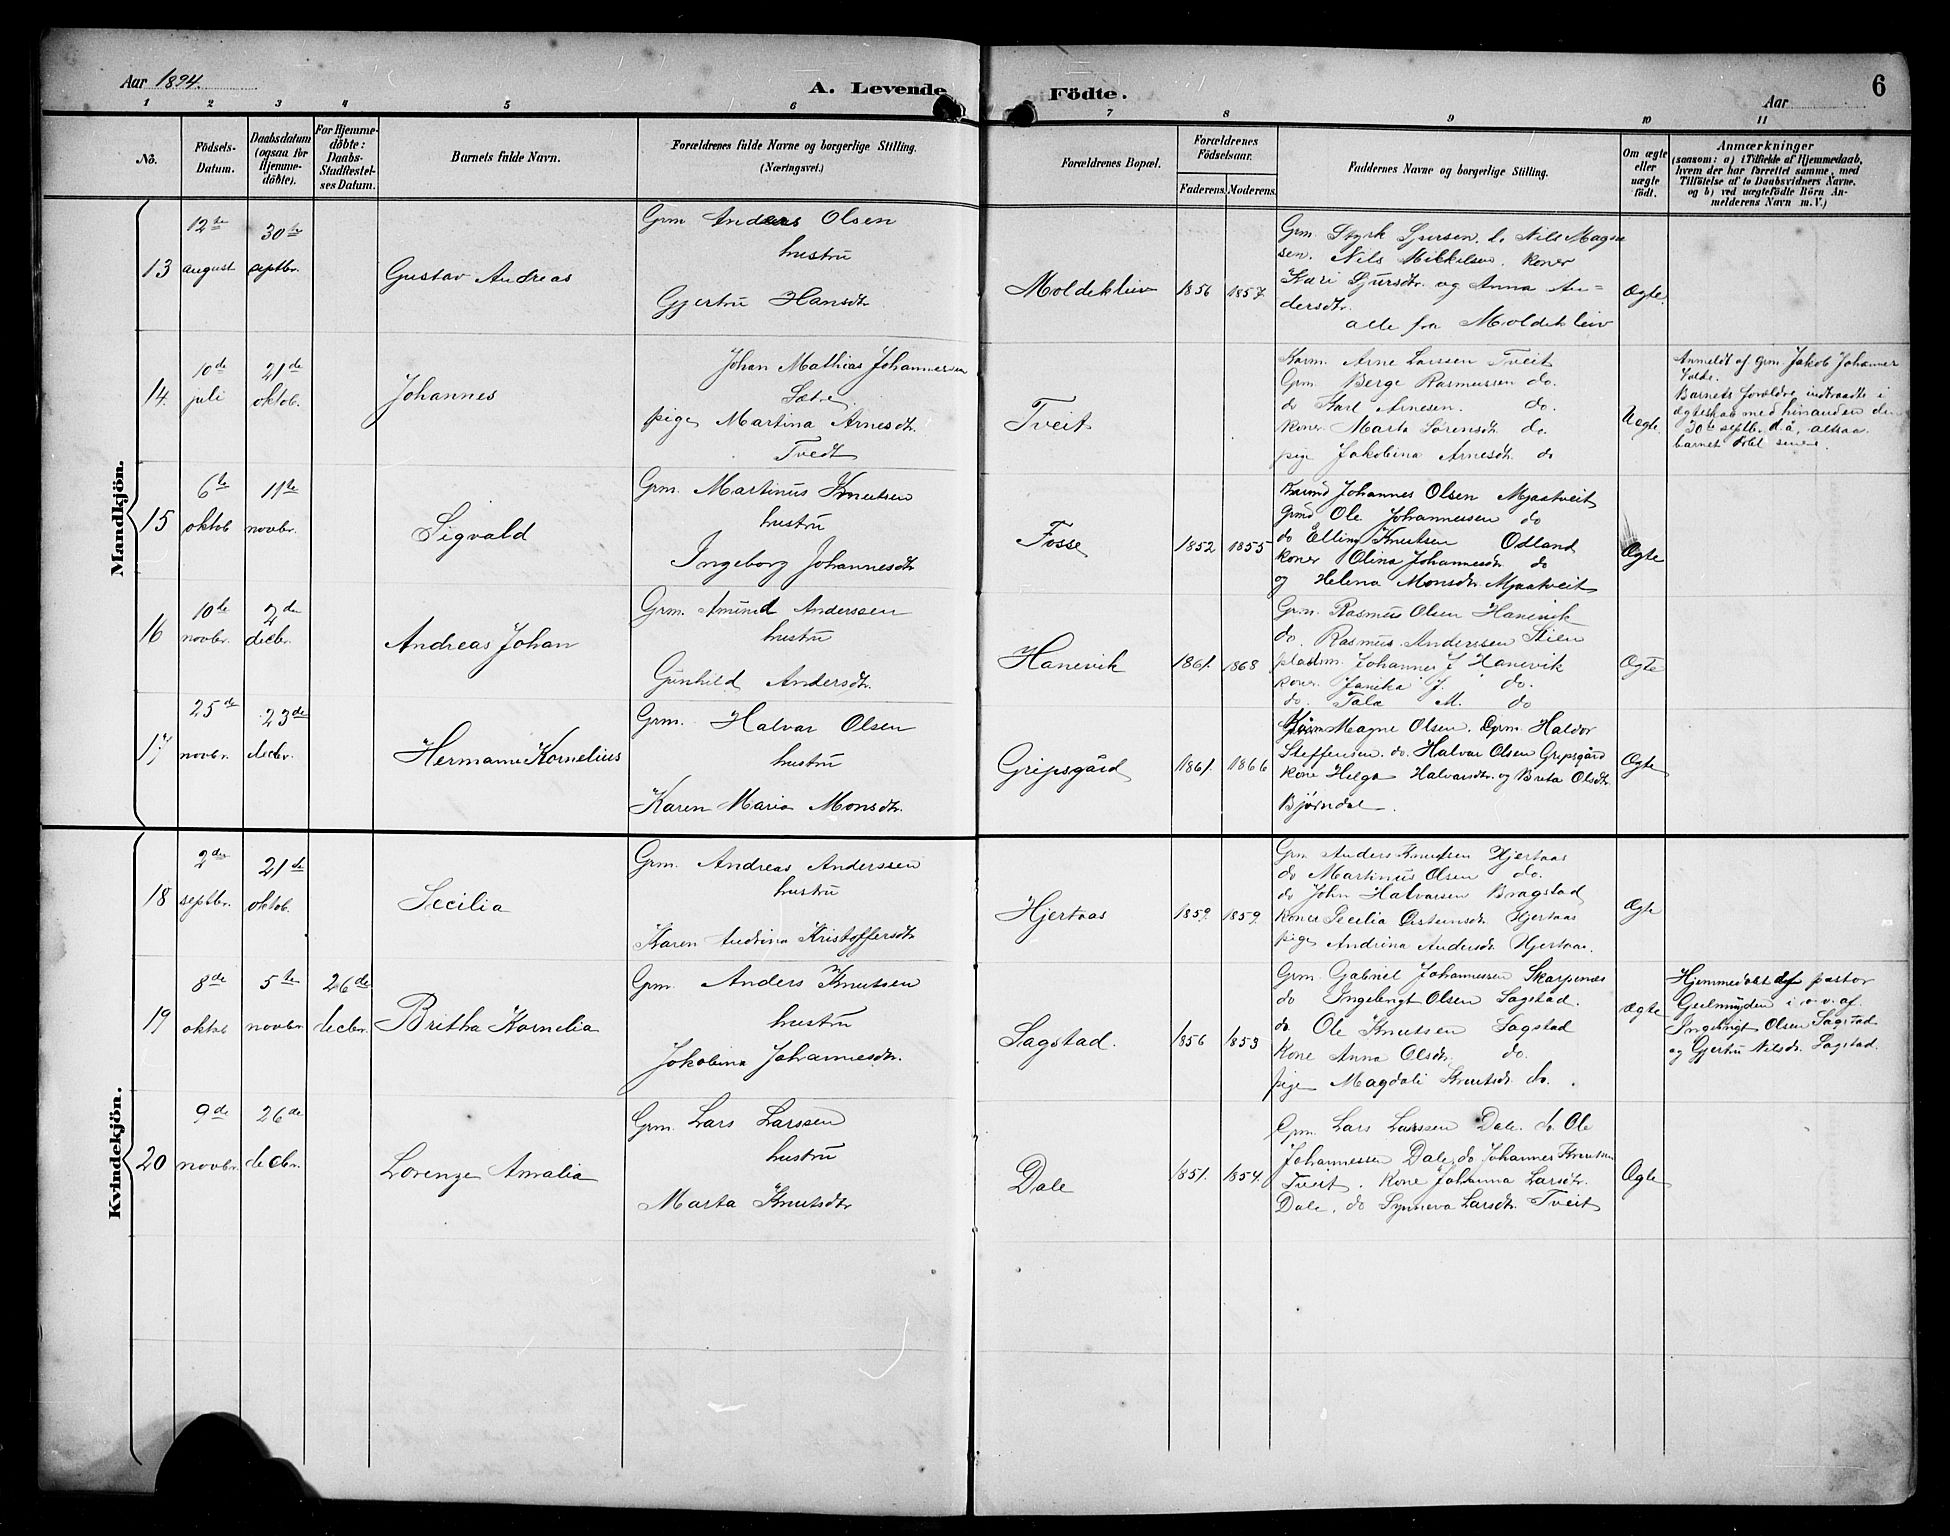 Aar 1894.
A. Levende
Födte.
Aar
6
1 2 3 4 5 6 7 8 9 10 11
No.
Födsels-
Datum.
Daabsdatum
(ogsaa for
Hjemme-
döbte).
For Hjemme-
döbte:
Daabs-
Stadfæstel-
ses Datum.
Barnets fulde Navn.
Forældrenes fulde Navne og borgerlige Stilling.
(Næringsvei.)
Forældrenes Bopæl.
Forældrenes
Födselsaar.
Faderens.
Moderens.
Faddernes Navne og borgerlige Stilling.
Om ægte
eller
uægte
födt.
Anmærkninger
(saasom: a) i Tilfælde af Hjemmedaab,
hvem der har forrettet samme, med
Tilföielse af to Daabsvidners Navne,
og b) ved uægtefödte Börn An-
melderens Navn m. V.)
Mandkjön.
13
12te
august
30te
septbr.
Gustav Andreas
Grm Anders Olsen
hustru
Gjertru Hansdtr
Moldekleiv
1856
1857
Grm. Styrk Sjursen. do Nils Magne
sen. Nils Mikkelsen. koner
Kari Sjursdtr. og Anna An=
dersdtr.
alle fra Moldekleiv
Ægte.
14.
10de
juli
21de
oktob.
Johannes
Johan Mathias Johannesen
Sætre
pige Martina Arnesdtr.
Tvedt
Tveit
Karm. Arne Larssen Tveit
Grm. Berge Rasmussen do.
do Karl Arnesen. do.
kone. Marta Sørensdtr do.
pige Jakobina Arnesdtr do
Uægte.
Anmeldt af Grm. Jakob Johannes
Barnets forældre indtraadte i
ægteskab med hinanden den
30te septbr. d.å, altsaa
barnet døbt senere
15
6te
oktob
11te
novbr.
Sigvald
Grm. Martinus Knutsen
hustru
Ingeborg Johannesdtr
Fosse
1852
1855
Karmd Johannes Olsen Mjaatveit
Grmd Ole Johannessen do
do Elling Knutsen Odland
koner Olina Johannesdtr do
og Helena Monsdtr. Mjaatveit
Ægte
16
10de
novbr.
2den
decbr.
Andreas Johan
Grm. Amund Anderssen
hustru
Gunhild Andersdtr.
Hanevik
1861.
1868
Grm. Rasmus Olsen Hanevik
do. Rasmus Anderssen Stien
pladsm. Johannes J Hanevik
kone. Janika J. do.
do. Tala M. do
Ægte
17
25de
novbr.
23de
decbr.
Hermann Kornelius
Grm. Halvar Olsen
hustru
Karen Maria Monsdtr.
Gripsgård
1861.
1866
Karm Magne Olsen. Grm. Haldor
Steffensen. do. Halvar Olsen Gripsgård
kone Helga Halvarsdtr. og Brita Olsdtr
Bjørndal.
Ægte
Kvindekjön.
18
2den
septbr.
21de
oktob.
Secilia
Grm. Andreas Anderssen
hustru
Karen Andrina Kristoffersdtr
Hjertaas
1859.
1859.
Grm Anders Knutsen Hjertaas
do Martinus Olsen do.
do John Halvorsen Bragstad
Kone Secilia Østensdtr Hjertaas
pige Andrina Andersdtr Hjertaas.
Ægte
19
8de
oktob
5te
novbr.
26de
decbr.
Britha Kornelia
Grm. Anders Knutsen
hustru
Jokobina Johannesdtr.
Sagstad.
1856
1853
Grm. Gabriel Johannessen Skarpenæs
do Ingebrigt Olsen Sagstad.
do. Ole Knutsen Sagstad
Kone Anna Olsdtr. do.
pige Magdali Knutsdtr. do.
Ægte
Hjemmedøbt af pastor
Gjelmuyden i o. v. af
Ingebrigt Olsen Sagstad
og Gjertru Nilsdtr. Sagstad.
20
9de
novbr.
26de
decbr.
Lorenze Amalia
Grm. Lars Larssen
hustru
Marta Knutsdtr
Dale
1851.
1854.
Grm. Lars Larssen Dale. do. Ole
Johannessen Dale, do Johannes Knutsen
Tveit. Kone Johanna Larsdtr.
Dale, do Synneva Larsdtr. Tveit
Ægte